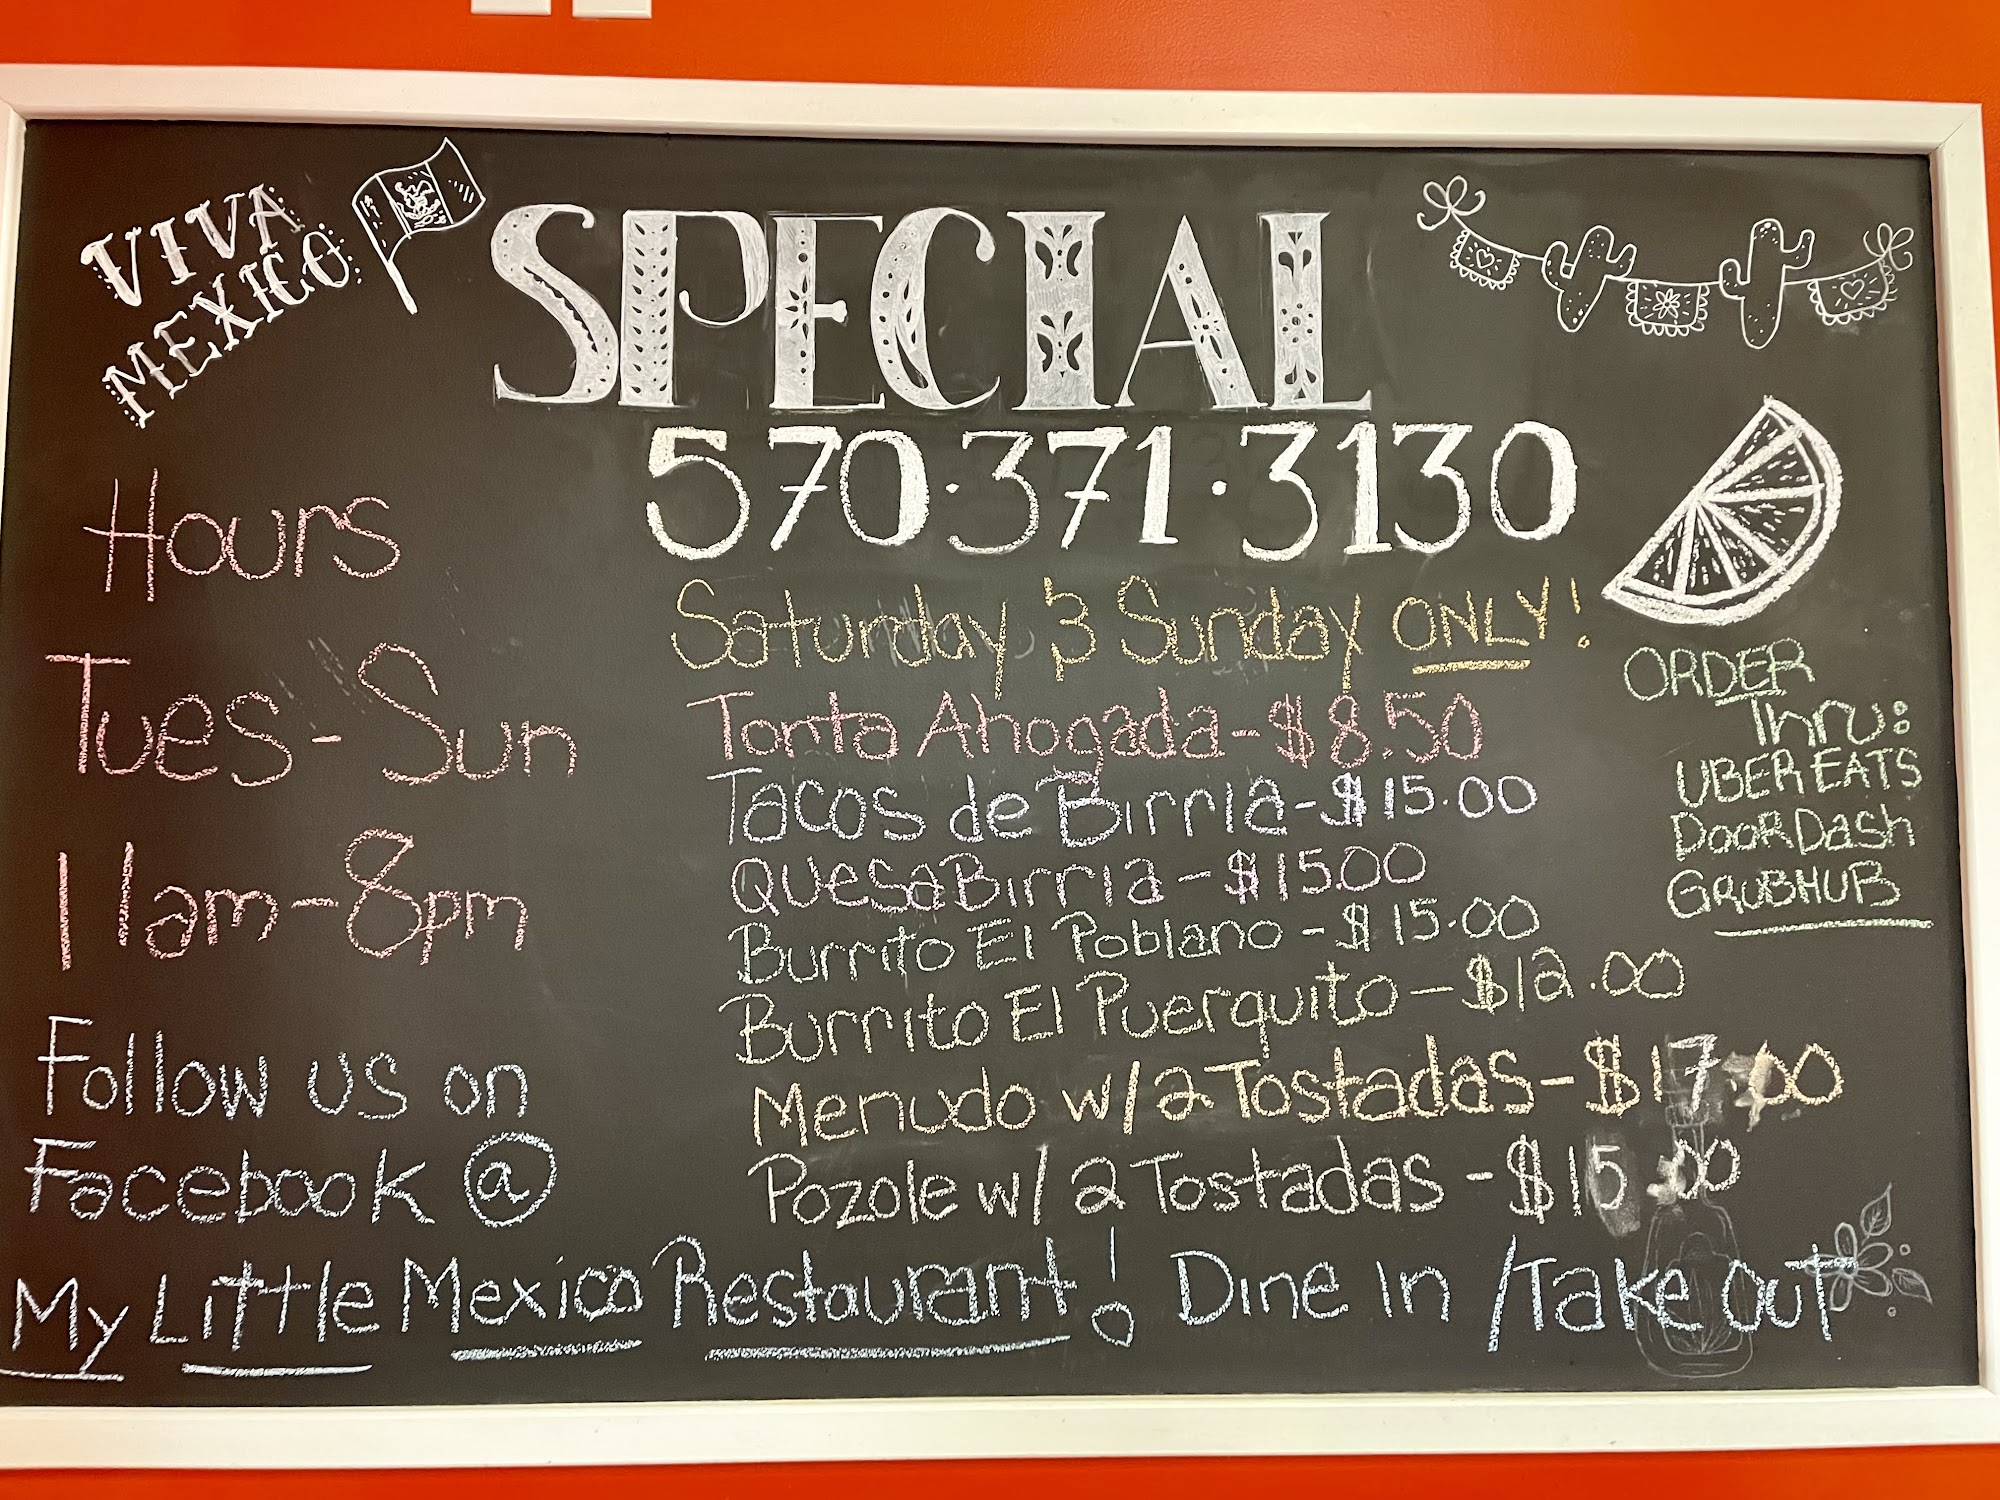 VIVA
MEXICO
SPECIAL
570·371·3130
Hours
Tues-Sun
11am-8pm
Follow us on
Facebook @
Saturday & Sunday ONLY!
Torta Ahogada-$8.50
Tacos de Birria-$15.00
QuesaBirria-$15.00
Burrito El Poblano-$15.00
Burrito El Puerquito-$12.00
Menudo w/2 Tostadas-$17.00
Pozole w/2 Tostadas-$15.00
ORDER
Thru:
UBER EATS
DoorDash
GRUBHUB
My Little Mexico Restaurant! Dine In /Take Out